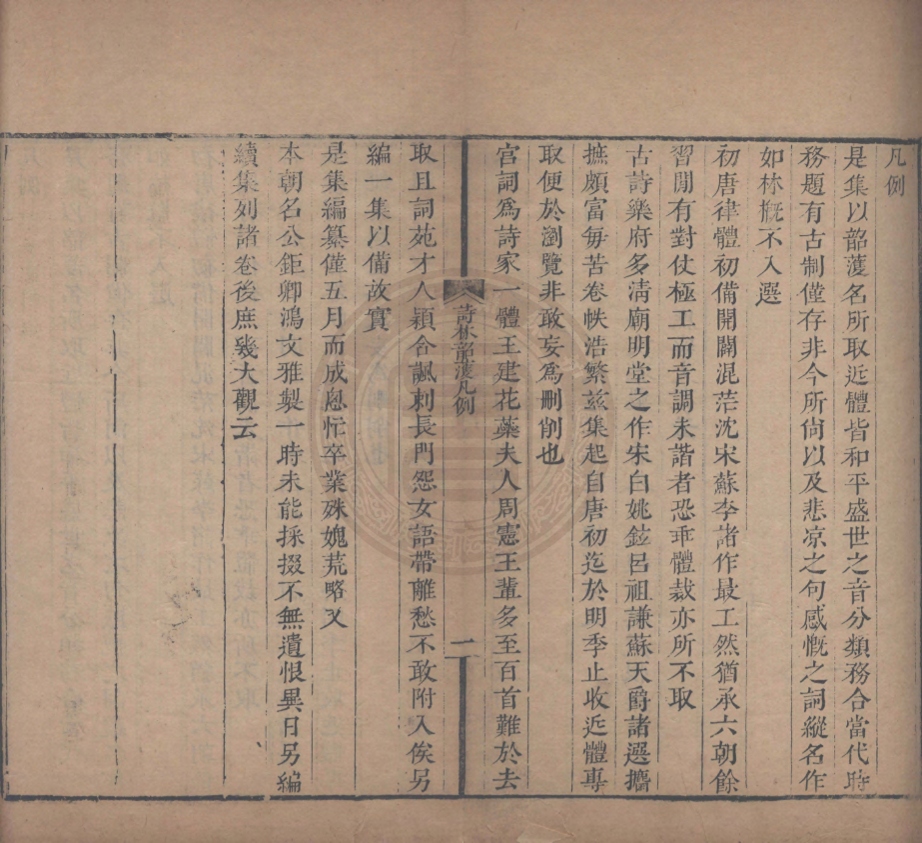 凡例
是集以韶頀名所取近體皆和平盛世之音分類務合當代時
務題有古制僅存非今所尙以及悲凉之句感慨之詞縱名作
如林槪不入選
初唐律體初備開闢混茫沈宋蘇李諸作最工然猶承六朝餘
習間有對仗極工而音調未諧者恐乖體裁亦所不取
古詩樂府多淸廟明堂之作宋白姚鉉呂祖謙蘇天爵諸選攟
摭頗富每苦卷帙浩繁兹集起自唐初迄於明季止收近體專
取便於瀏覽非敢妄爲刪削也
宫詞爲詩家一體王建花蘂夫人周憲王輩多至百首難於去
詩林韶頀凡例
二
取且詞苑才人穎合諷刺長門怨女語帶離愁不敢附入俟另
編一集以備故實
是集編纂僅五月而成悤忙卒業殊媿荒略又
本朝名公鉅卿鴻文雅製一時未能採掇不無遺恨異日另編
續集列諸卷後庶幾大觀云